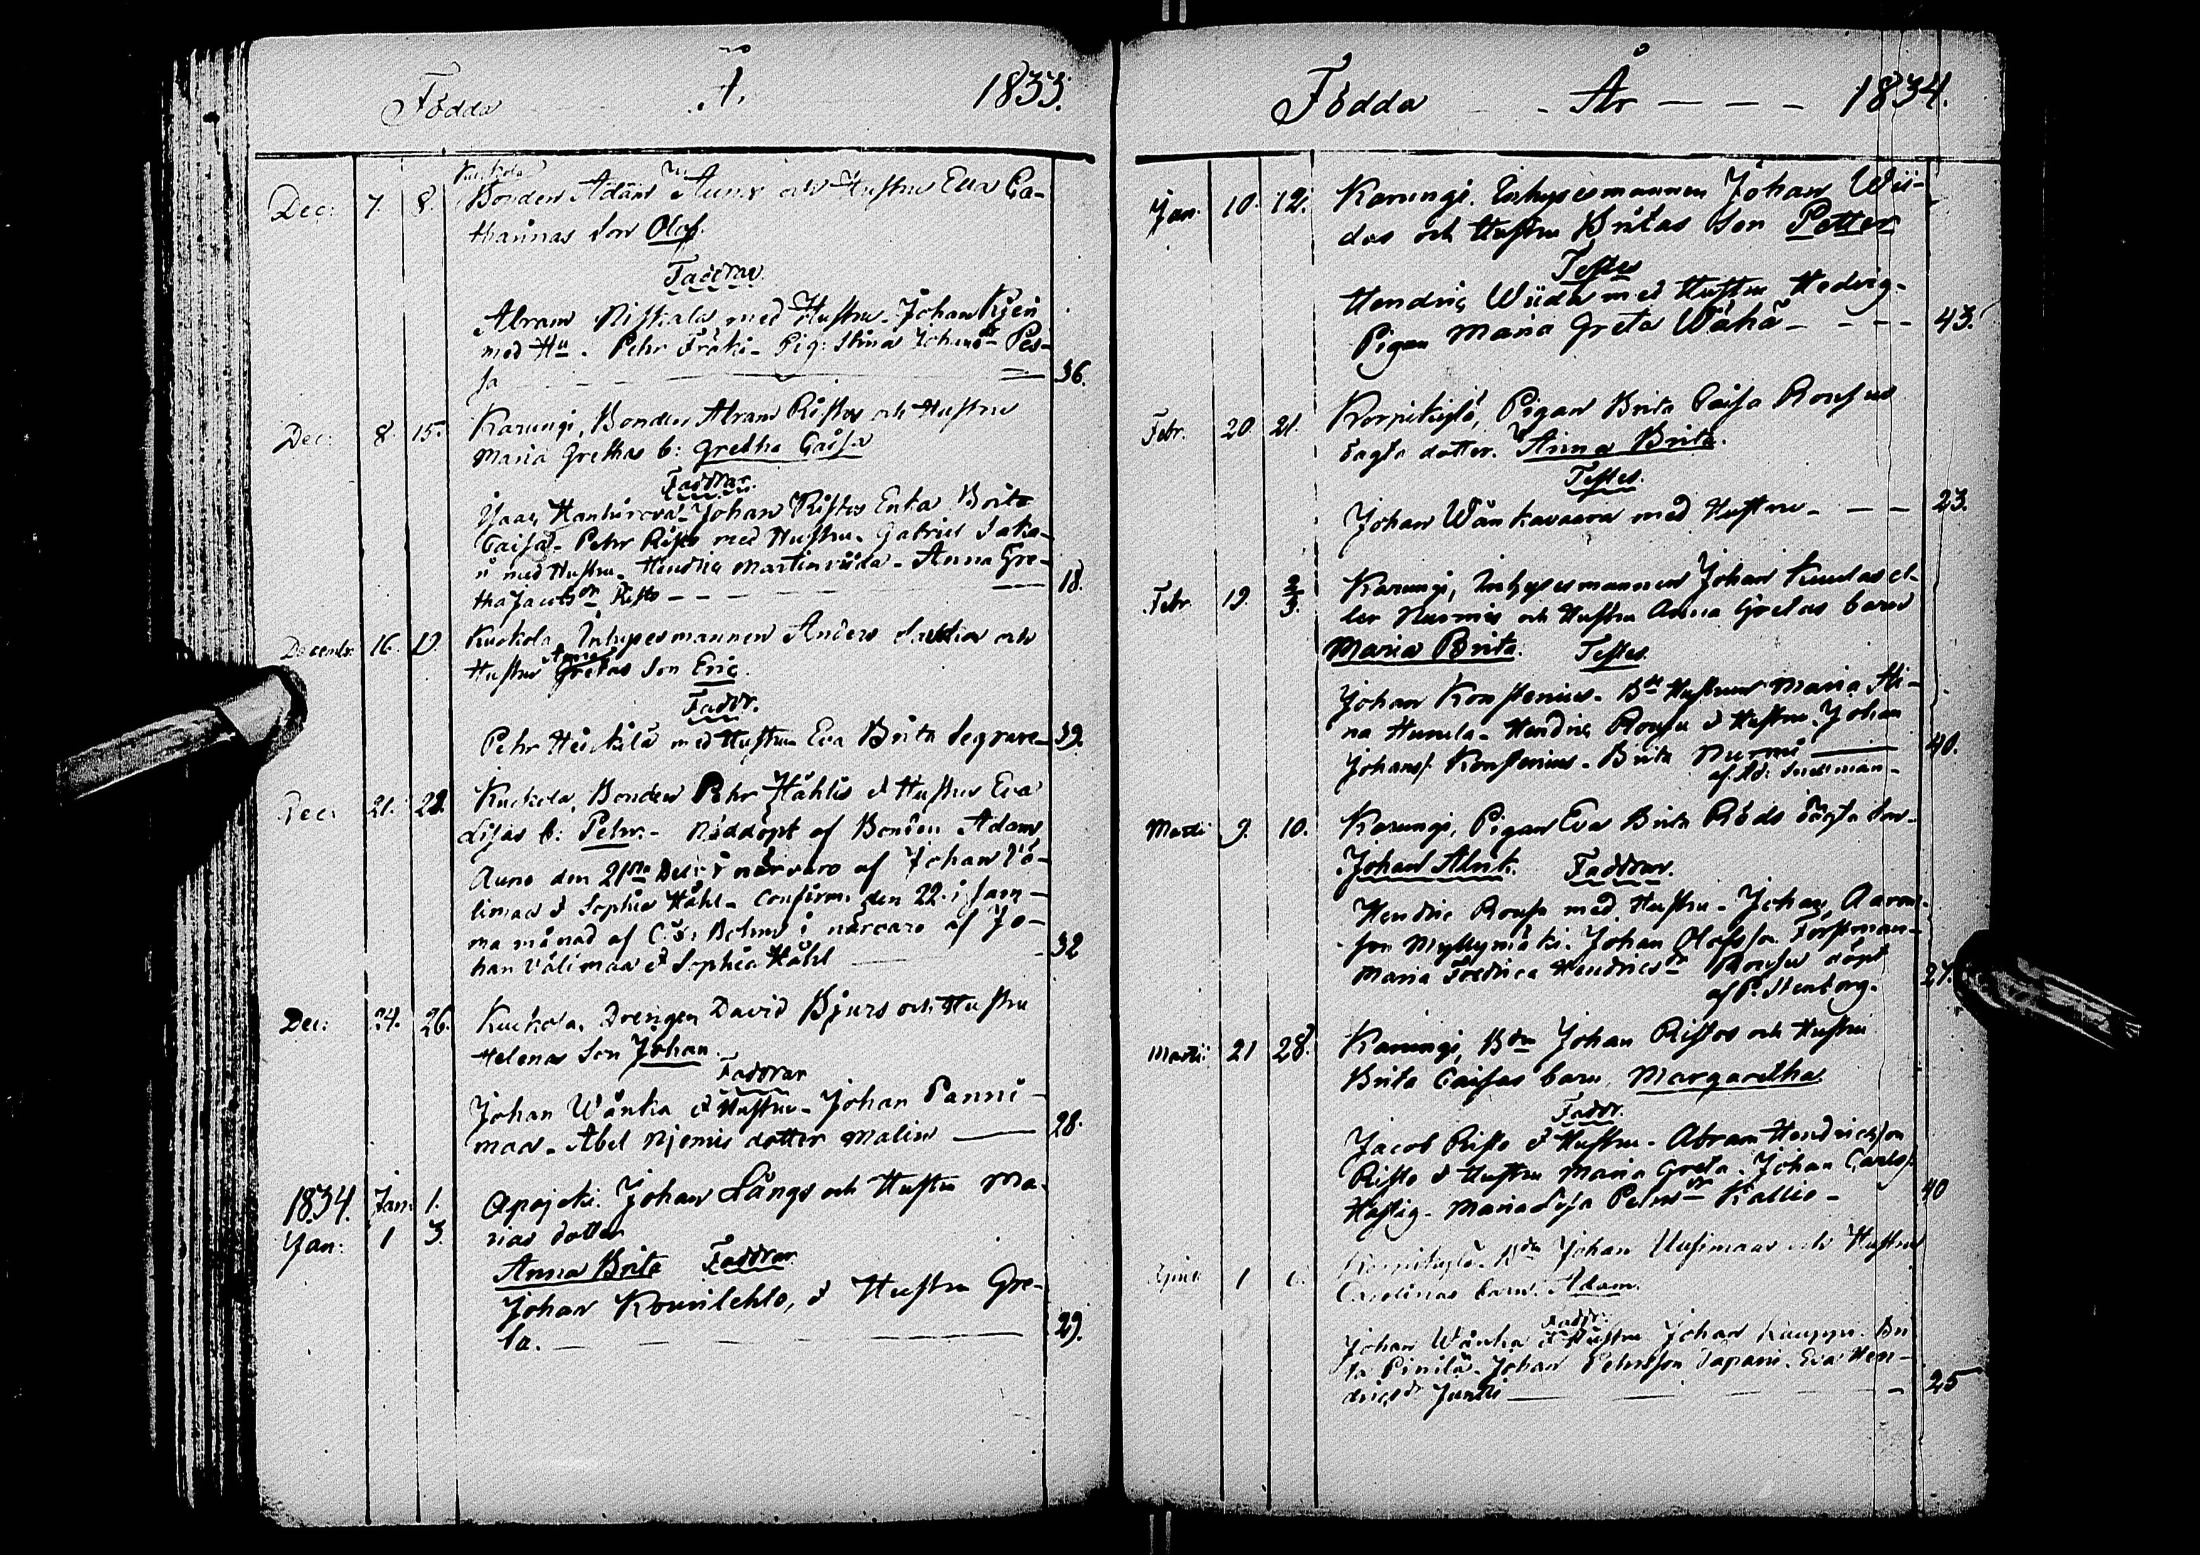 Födda Å. 1833.
Kuckola
Dec: 7. 8. Bonden Adam Auno och Hustru Eva Ca-
thamas Son Olof.
Faddrar
Abram Niskala med Hustru. Johan Kjeri
med Hu. Pehr Fräki- Pig: Stina Johansdr Pes-
sa 36.
Dec: 8. 15. Karungi, Bonden Abram Ristos och Hustru
Maria Grethas b: Gretha Caisa
Faddrar
Isaac Johan Ristos Enka Brita
Caisa- Pehr Risto med Hustru. Gabriel
med Hustru- Hendric Martinviida- Anna Gre-
tha Jacobsdr Risto - - - 18.
Decembr 16. Kuckola, Inhysesmannen Anders och
Hustru Anna Gretas Son Eric
Faddr.
Pehr Heickilä med Hustru Eva Brita 39.
Dec: 21. 22. Kuckola, Bonden Pehr Håhlis & Hustru Eva
Lisas b: Petter.- Nöddöpt af Bonden Adam
Auno den 21sta Dec: i närvaro af Johan Vä-
limaa & Sophia Håhl- Confirm. den 22. i sam-
ma månad af i närvaro af Jo-
han Välimaa & Sophia Håhl 32
Dec: 24. 26. Kuckola, Drengen David Bjurs och Hustru
Helenas Son Johan.
Faddrar
Johan Wänka & Hustru- Johan Panni-
maa- Abel Njemis dotter Malin 28.
1834. Jan: 1.
Jan: 1 3. Apajeki. Johan Långs och Hustru Ma-
rias dotter
Anna Brita Faddrar
Johan Kouvilehto, & Hustru Gre-
ta. 29.
Födda - År - - - 1834.
Jan. 10. 12. Karungi. Inhysesmannen Johan Wii-
das och Hustru Britas Son Petter
Testes
Hendric Wiida med Hustru Hedvig-
Pigan Maria Greta Wähä - - - 43.
Febr. 20. 21. Korpikylä, Pigan Brita Caisa Rousus
oägta dotter. Anna Brita.
Testes.
Johan Wänkavaara med Hustru - - - 23.
Febr. 19. 2/3. Karungi, Inhysesmannen Johan Kuulas el-
ler Nurmis och Hustru Anna Gretas barn
Maria Brita. Testes.
Johan Konstenius- Bds Hustrun Maria Sti-
na Hunula- Hendric Rousu & Hustru. Johan
Johanss. Konstenius- Brita Nurmi 40.
Martii 9. 10. Karungi, Pigan Eva Brita Röds oägta Son-
Johan Abr. Faddrar.
Hendric Rousu med Hustru- Johan Aarons-
son Myllymäki. Johan Olofsson Forssman-
Maria Fredrica Hendricsdr Rousus döpt
af P. Stenborg. 27.
Martii 21 28. Karungi, Bdn Johan Ristos och Hustru
Brita Caisas barn, Margaretha
Faddr.
Jacob Risto & Hustru- Abram Hendricsson
Risto & Hustru Maria Greta. Johan Carlss.
Hastig- Maria Lisa Pehrsdr Kallio- 40
April 1 6. Korpikylä. Bdn Johan Uusimaas och Hustru
Carolinas barn. Adam.
Faddr:
Johan Wänka & Hustru Johan Bri
ta Pinilä. Johan Pehrsson Tapani. Eva Hen-
dricsdr Juntti 25